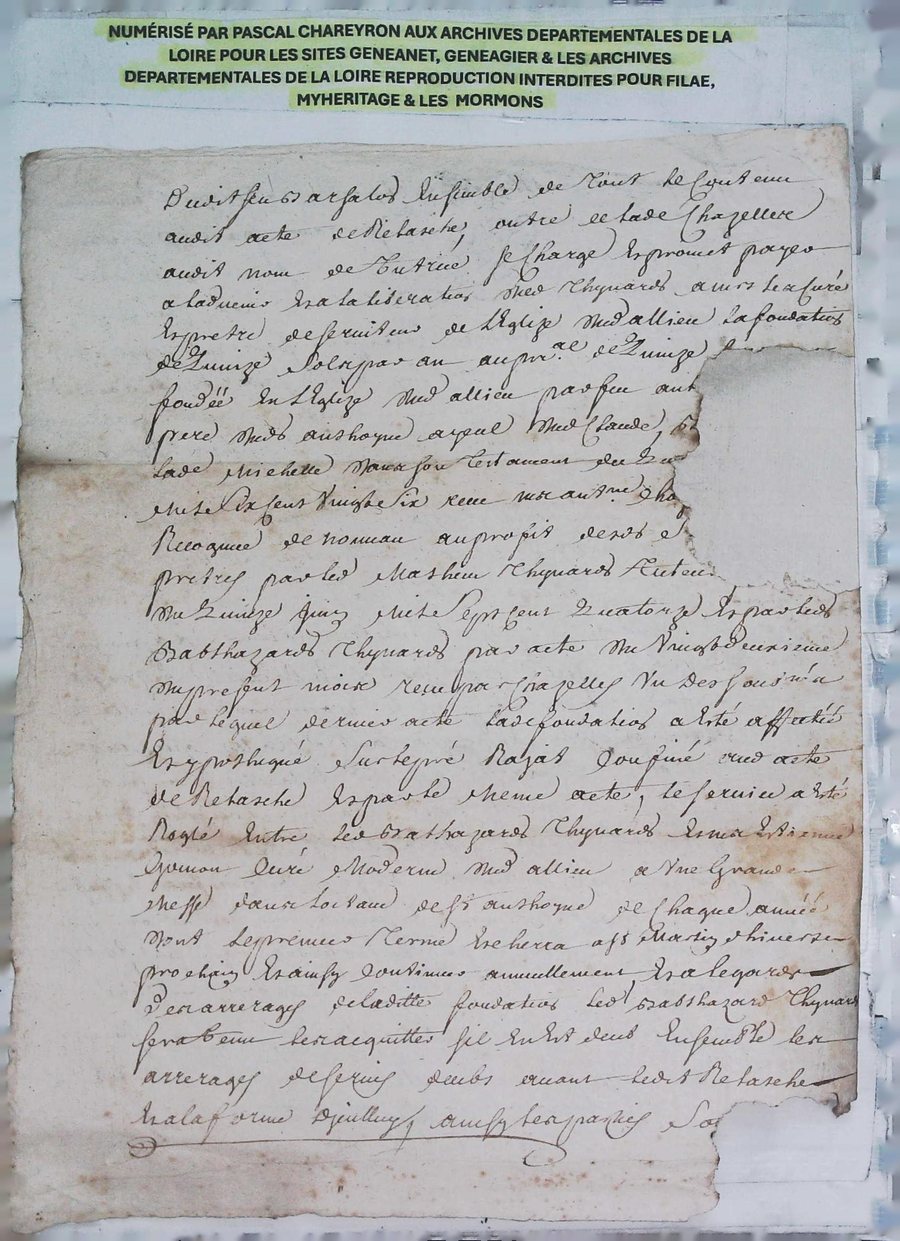 NUMÉRISÉ PAR PASCAL CHAREYRON AUX ARCHIVES DEPARTEMENTALES DE LA
LOIRE POUR LES SITES GENEANET, GENEAGIER & LES ARCHIVES
DEPARTEMENTALES DE LA LOIRE REPRODUCTION INTERDITES POUR FILAE,
MYHERITAGE & LES MORMONS
Dudit feu Ensemble de Tout le Contenu
audit acte de Relasche, outre ce lade Chazellere
audit nom de Tutrice se Charge Espromet payer
aladvenir Esalaliberation dud Thynards curé
Espretre deserviteur de l'Eglize dud allieu la fondation
de Quinze sols par an au pral de Quinze
fondéé En l'Eglize dud allieu par feu ant
pere duds anthoyne ayeul dud Claude,
lade Michelle dans son Testament du
Mil Six Cent Vingt Six receu
Recognue de nouveau au profit desds
pretres par led Mathieu Thynards
du Quinze Juin Mil Sept Cent Quatorze Es par leds
Balthazards Thynards par acte du Vingtdeuxieme
du present mois receu par Chazelles
par lequel dernier acte lade fondation a Esté affectéé
Es ypothequé Sur le pré Rajat Confiné aud acte
de Relasche Es par le meme acte, le service a Esté
Reglé Entre leds Balthazards Thynards
Curé Moderne dud allieu a Une Grande
Messe dans loctave de St anthoyne de Chaque annéé
dont le premier Terme Escherra a St Martin dhiver
prochain Esainsy Continuer annuellement, Esalegards
Des arrerages deladitte fondation led Balthazard Thynards
sera Tenu lesacquitter sil En Est deub Ensemble les
arrerages de servis deubs avant ledit Relasche
Esala forme Djcelluy, ainsy les parties